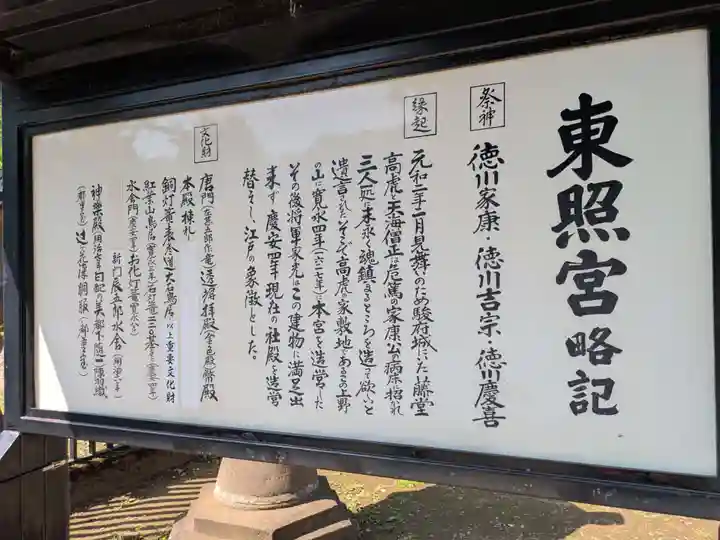 東照宮略記
祭神
徳川家康・徳川吉宗・徳川慶喜
縁起
元和二年二月見舞のため駿府城にいた藤堂
高虎と天海僧正は危篤の家康公の病床に招かれ
三人一処に末永く魂鎮まるところを造って欲しいと
遺言された。そこで高虎の家敷地であるこの上野
の山に寛永四年(一六二七年)に本宮を造営した
その後将軍家光はこの建物に満足出
来ず慶安四年現在の社殿を造営
替えし、江戸の象徴とした。
文化財
唐門(左甚五郎作竜)透塀拝殿(金色殿)幣殿
本殿棟札
銅灯篭表参道大石鳥居以上重要文化財
紅葉山鳥居
水舎門 お花灯篭
新門辰五郎水舎
神楽殿